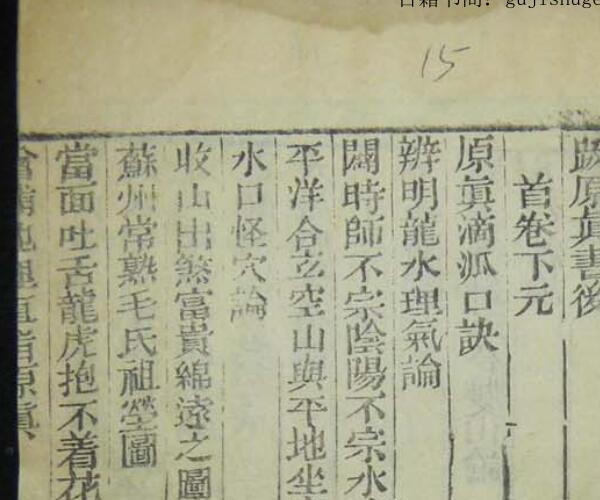 古籍书阁：gujishuge
15
跋原眞書後
首卷下元
原眞滴泒口訣
辨明龍水理氣論
闢時師不宗陰陽不宗水
平洋合玄空山與平地坐
水口怪穴論
收山出煞富貴綿遠之圖
蘇州常熟毛氏祖塋圖
當面吐舌龍虎抱不着花
地理直指原眞